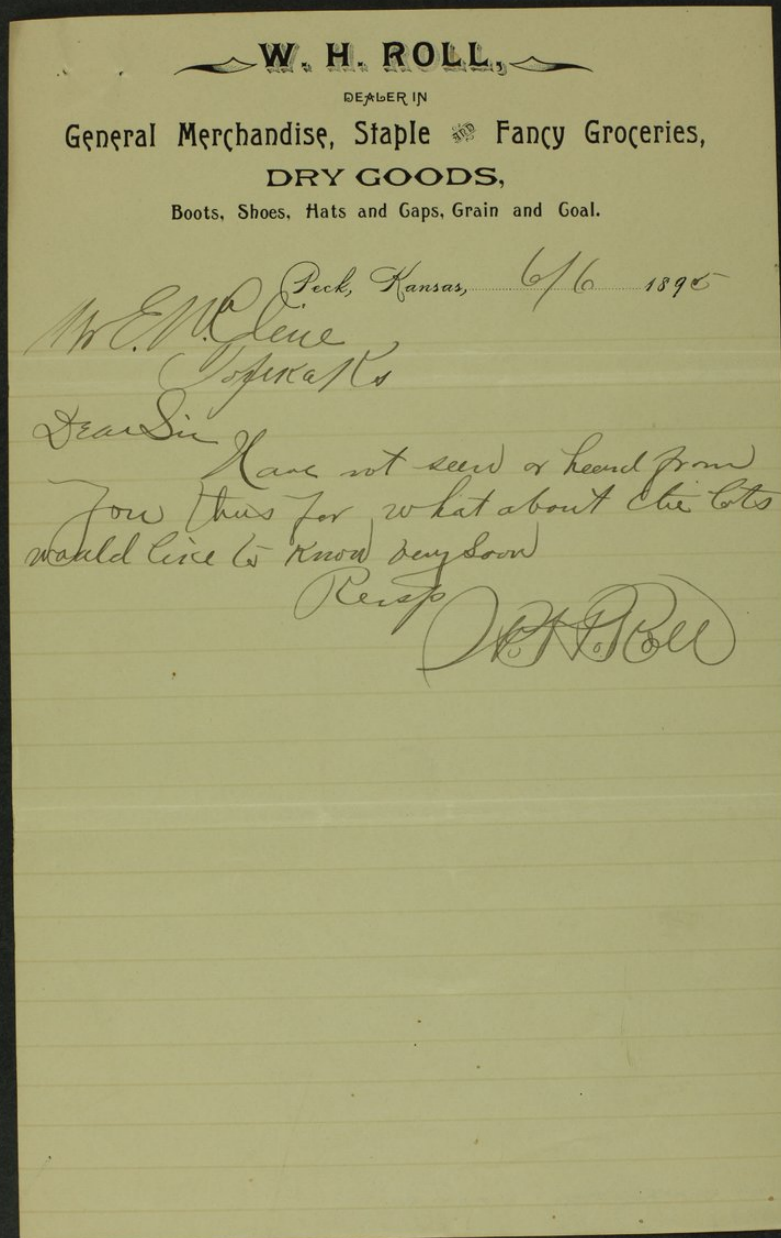 W. H. ROLL,
DEALER IN
General Merchandise, Staple AND Fancy Groceries,
DRY GOODS,
Boots, Shoes, Hats and Caps, Grain and Coal.
Peck, Kansas, 6/6 1895
Mr E. W. Cline
Topeka Ks
Dear Sir
Have not seen or heard from
you thus far, what about the lots
would like to know very soon
Resp
W. H. Roll